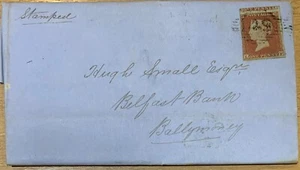 Stamped
Hugh Small Esqr.
Belfast Bank
Ballymoney